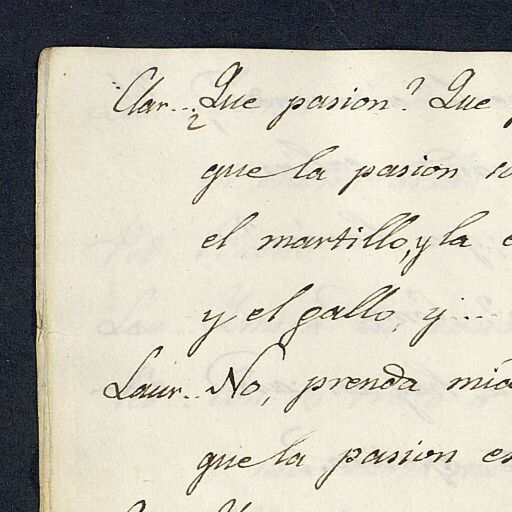 Clar... Que pasion? Que
que la pasion
el martillo, y la
y el gallo, y....
Laur.. No, prenda mia
que la pasion es